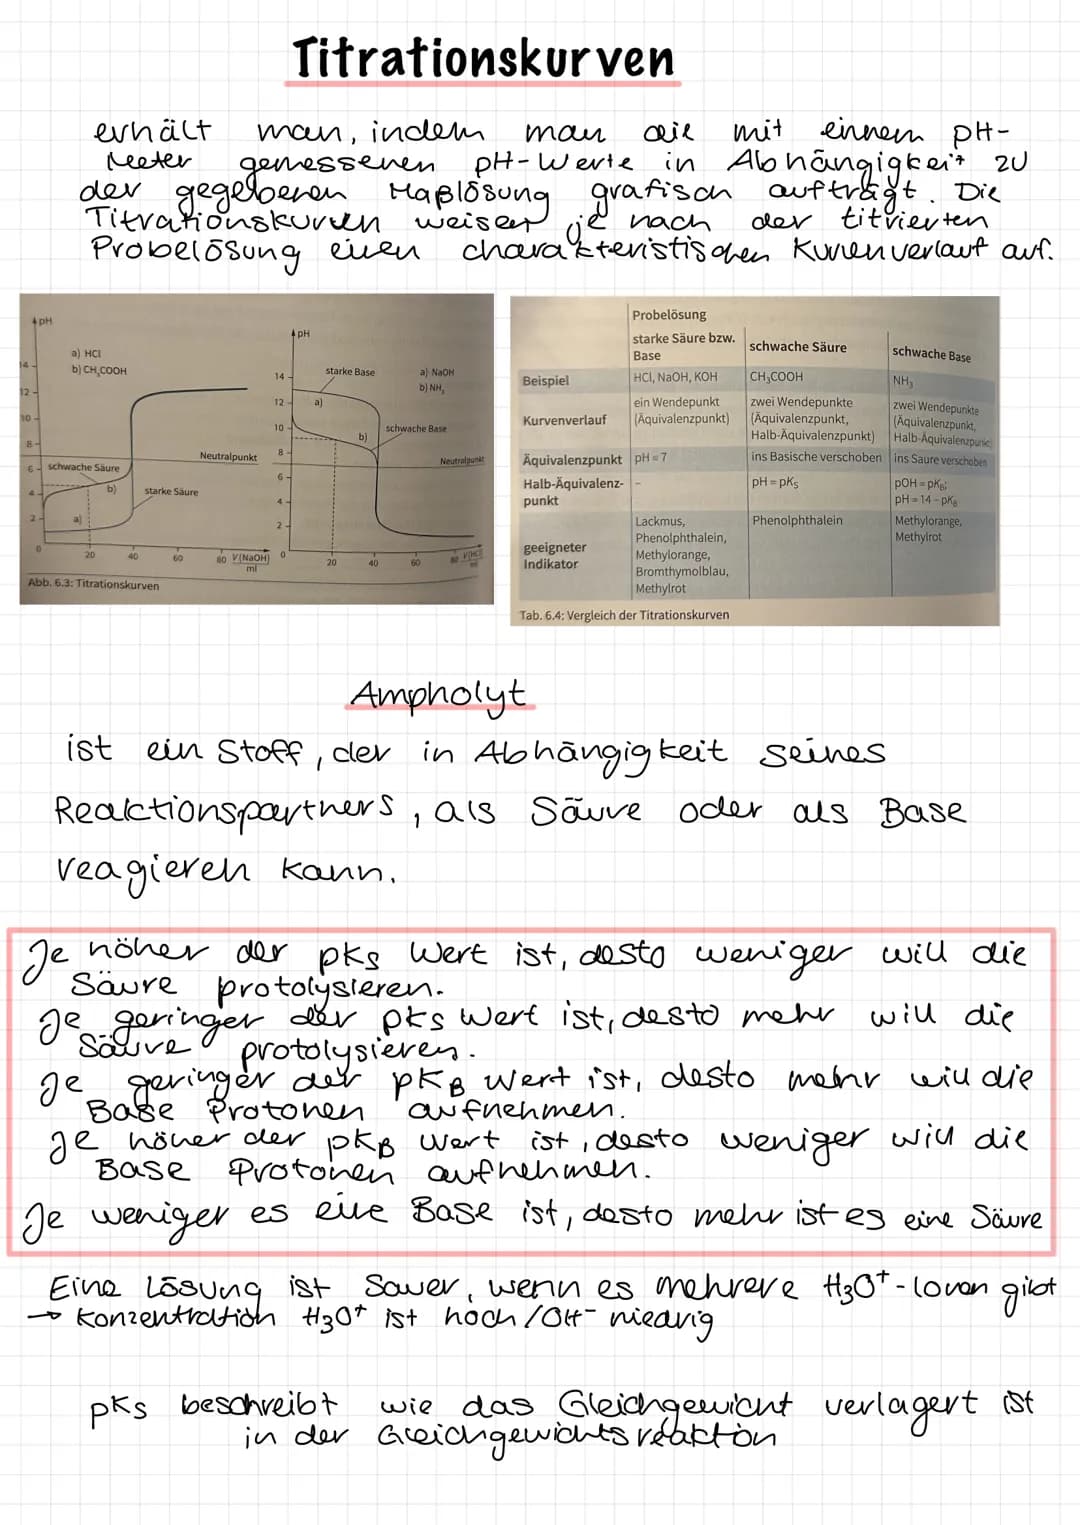 Titrationskurven
erhält man, indem man die mit einnem pH-
Meter gemessenen pH-Werte in Abhängigkeit zu
der gegebenen Maßlösung grafisch aufträgt. Die
Titrationskurven weisen je nach der titrierten
Probelösung einen charakteristischen Kurvenverlauf auf.
pH
a) HCl
b) CH₃COOH
14
12
10
8
6
4
2
0
schwache Säure
b)
starke Säure
a)
Neutralpunkt
20
40
60
80 V(NaOH)
ml
Abb. 6.3: Titrationskurven
pH
14
12
10
8
6
4
2
0
starke Base
a) NaOH
b) NH₃
a)
b)
schwache Base
Neutralpunkt
20
40
60
80 V(HCl)
ml
Probelösung
starke Säure bzw. Base
schwache Säure
schwache Base
Beispiel
HCl, NaOH, KOH
CH₃COOH
NH₃
Kurvenverlauf
ein Wendepunkt
(Äquivalenzpunkt)
zwei Wendepunkte
(Äquivalenzpunkt,
Halb-Äquivalenzpunkt)
zwei Wendepunkte
(Äquivalenzpunkt,
Halb-Äquivalenzpunkt)
Äquivalenzpunkt
pH = 7
ins Basische verschoben
ins Saure verschoben
Halb-Äquivalenz-
punkt
-
pH = pKₛ
pOH = pK_B;
pH = 14 - pK_B
geeigneter
Indikator
Lackmus,
Phenolphthalein,
Methylorange,
Bromthymolblau,
Methylrot
Phenolphthalein
Methylorange,
Methylrot
Tab. 6.4: Vergleich der Titrationskurven
Ampholyt
ist ein Stoff, der in Abhängigkeit seines
Reaktionspartners, als Säure oder als Base
reagieren kann.
Je höher der pks Wert ist, desto weniger will die
Säure protolysieren.
Je geringer der pks Wert ist, desto mehr will die
Säure protolysieren.
Je geringer der pKB Wert ist, desto mehr will die
Base Protonen aufnehmen.
Je höher der pKB Wert ist, desto weniger will die
Base Protonen aufnehmen.
Je weniger es eine Base ist, desto mehr ist es eine Säure
Eine Lösung ist Sauer, wenn es mehrere H₃O⁺-Ionen gibt
→ Konzentration H₃O⁺ ist hoch/OH⁻ niedrig
pKs beschreibt wie das Gleichgewicht verlagert ist
in der Gleichgewichtsreaktion